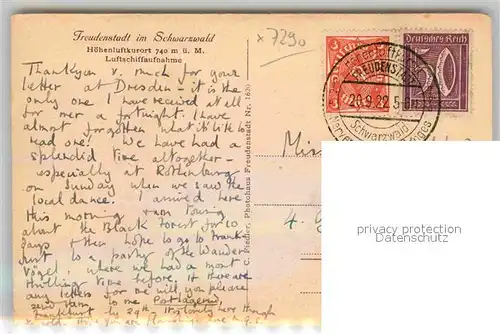 Freudenstadt im Schwarzwald
Höhenluftkurort 740 m ü. M.
Luftschiffaufnahme
x7290
Deutsches Reich
50
FREUDENSTADT
20.9.22.5-6
Schwarzwald
Thankyou v. much for your
letter at Dresden - it is the
only one I have received at all
for over a fortnight. I have
almost forgotten what it's like to
read one. We have had a
splendid time altogether -
especially at Rothenburg
on Sunday when we saw the
local dance. I arrived here
this morning & am
about the Black Forest for 10
days & then hope to go to Frank-
to a party of the Wander
Vögel where we had a most
thrilling time before. If there are
any letters for me will you please
send them to me Postlagernd
Frankfurt by 29th. It's lovely here though
C. Fiedler, Photohaus Freudenstadt Nr. 1620
Miss
4.
privacy protection
Datenschutz